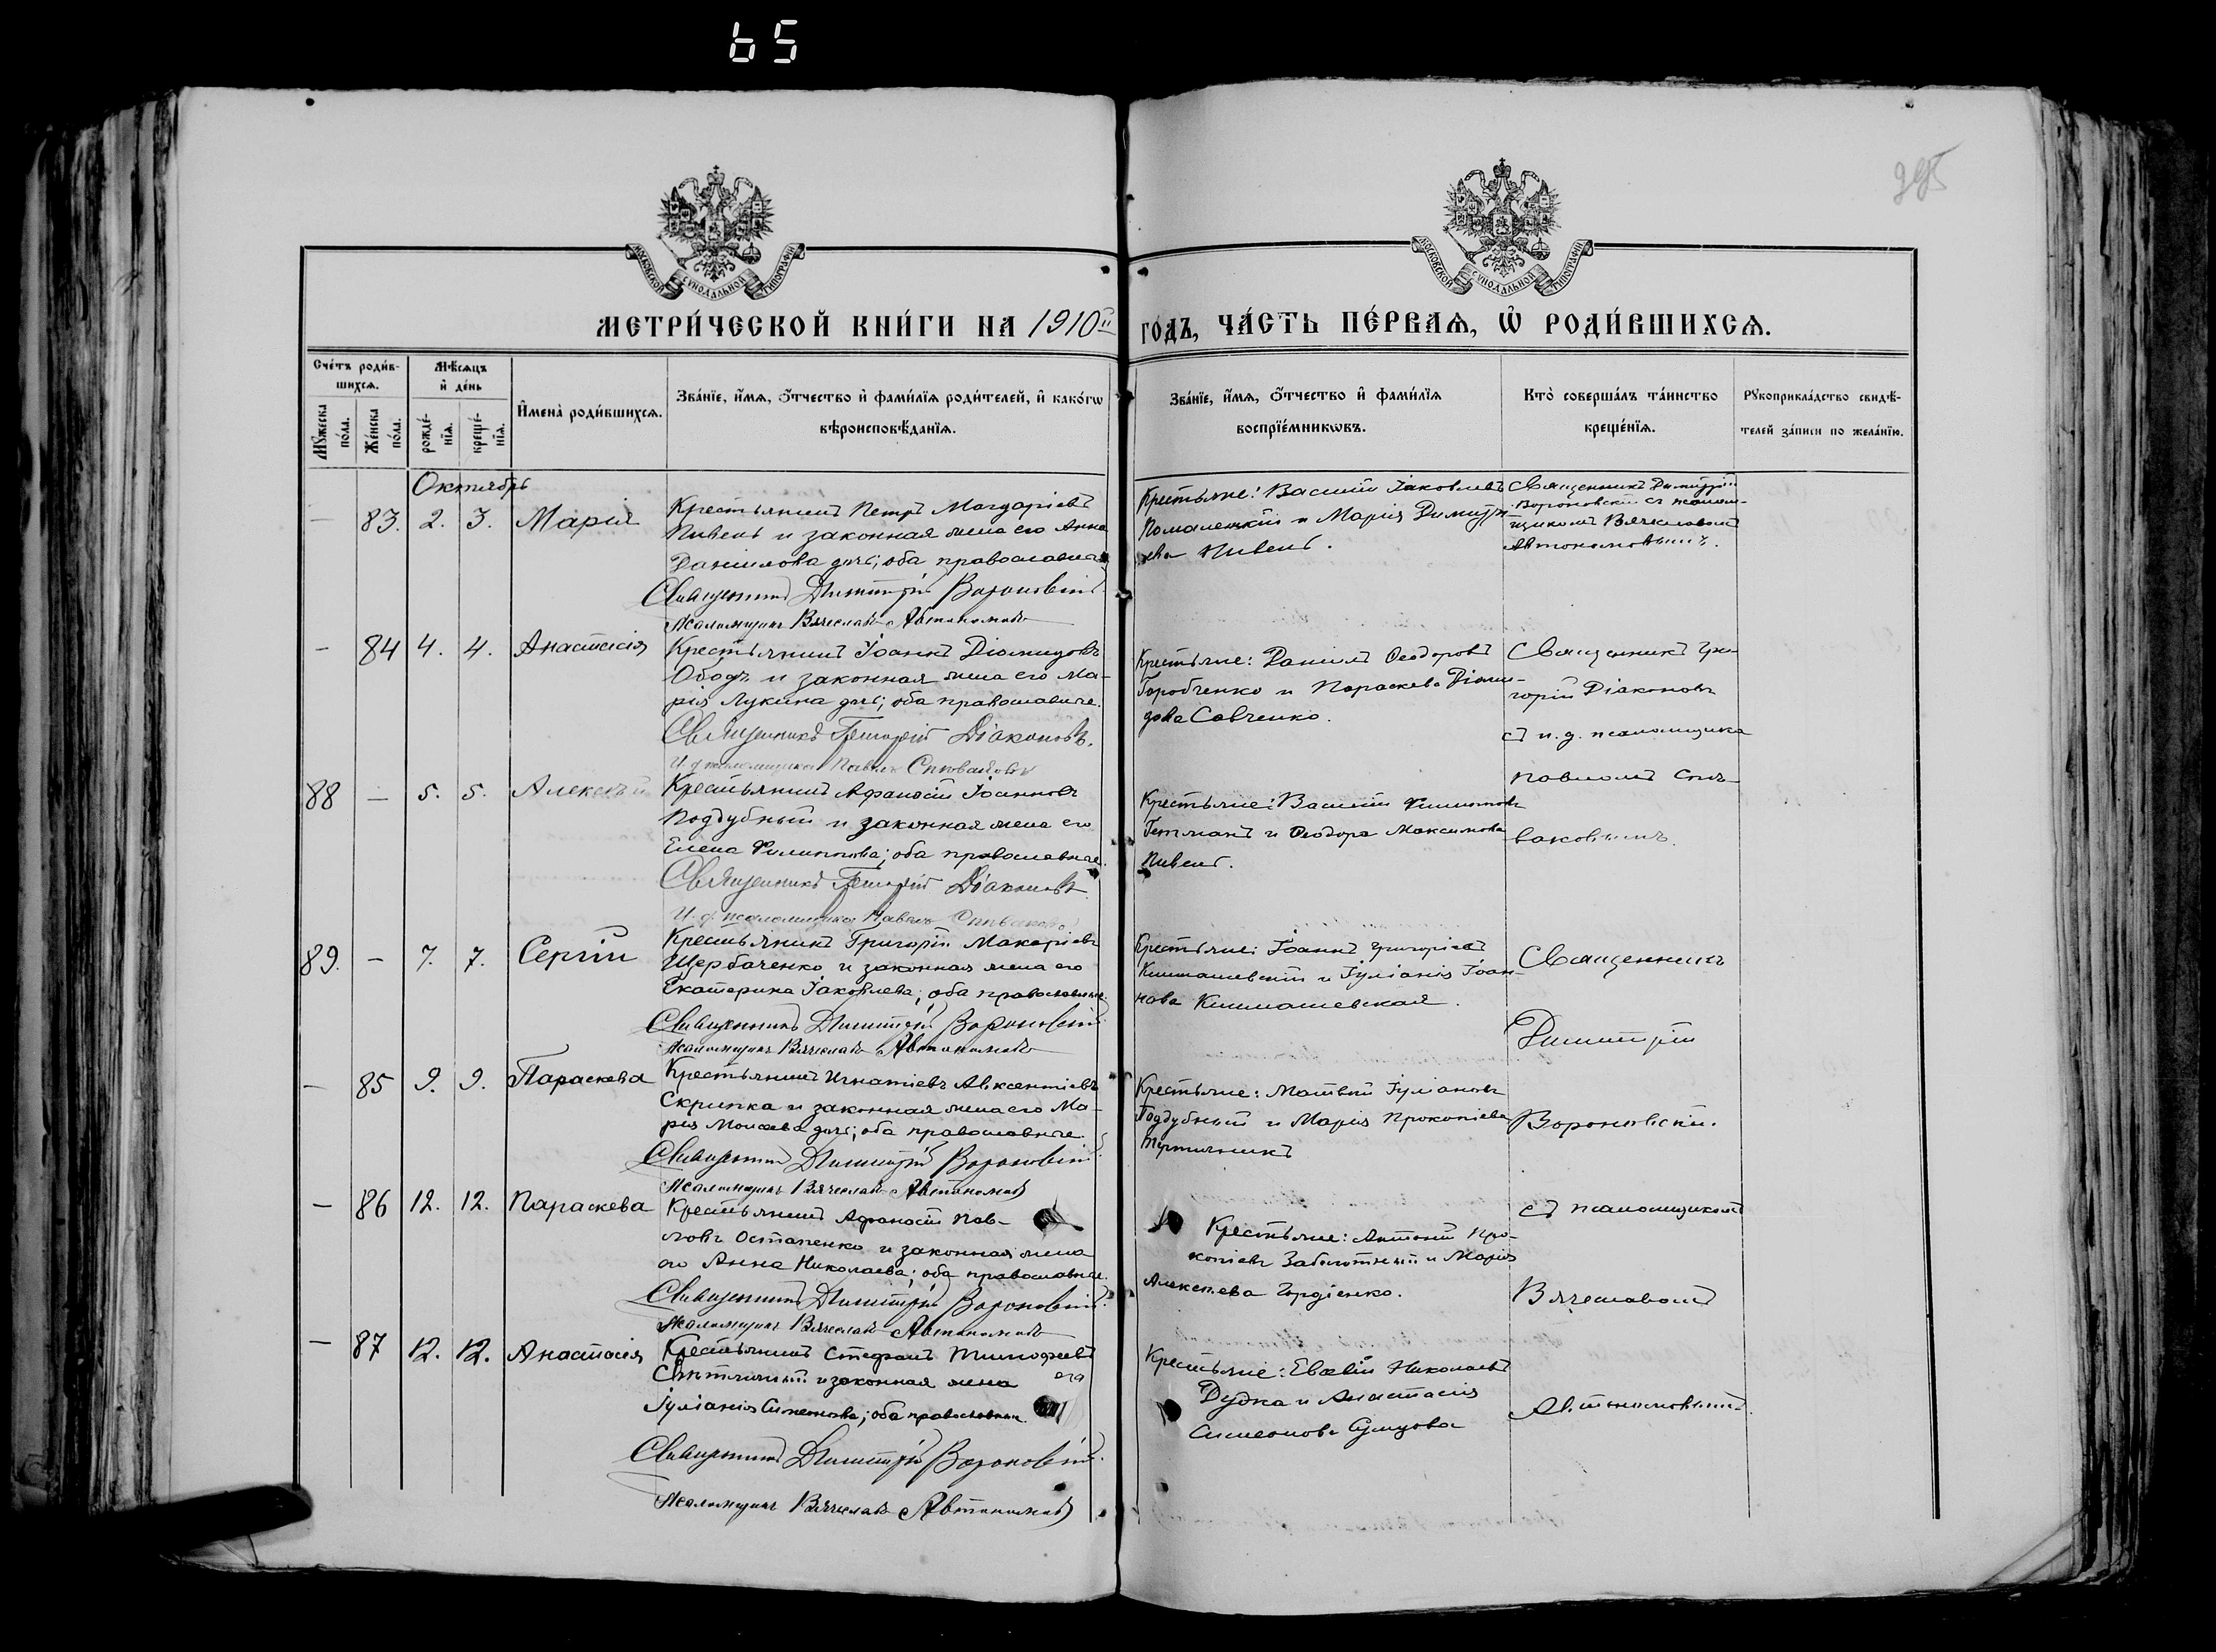 65
295
МОСКОВСКОЙ СѴНОДАЛЬНОЙ ТИПОГРАФІИ
МОСКОВСКОЙ СѴНОДАЛЬНОЙ ТИПОГРАФІИ
МЕТРИ́ЧЕСКОЙ КНИ́ГИ НА 1910й
ГО́ДЪ, ЧА́СТЬ ПЕ́РВАѦ, Ѡ҆ РОДИ́ВШИХСѦ.
Сче́тъ роди́в-
шихсѧ.
Мꙋ́жеска по́ла.
Же́нска по́ла.
Мѣ́сѧцъ
и҆ де́нь
рожде́-
нїѧ.
креще́-
нїѧ.
И҆мена̀ роди́вшихсѧ.
Зва́нїе, и҆́мѧ, ѻ҆́тчество и҆ фами́лїѧ роди́телей, и҆ како́гѡ
вѣроисповѣ́данїѧ.
Зва́нїе, и҆́мѧ, ѻ҆́тчество и҆ фами́лїѧ
воспрїе́мникѡвъ.
Кто̀ соверша́лъ та́инство
креще́нїѧ.
Рꙋкоприкла́дство свидѣ́-
телей за́писи по жела́нїю.
Октябрь
— 83. 2. 3. Марія
Крестьянинъ Петръ
Пивень и законная жена его Анна
Данилова дочь; оба православные
Священникъ Димитрій Вороновскій
Псаломщикъ Вячеславъ Автономовъ
Крестьяне: Василій Іаковлевъ
и Марія Димитрі-
ева Пивень.
Священникъ Димитрій
Вороновскій съ псалом-
щикомъ Вячеславомъ
Автономовымъ.
— 84 4. 4. Анастасія
Крестьянинъ Іоаннъ Діомидовъ
Ободъ и законная жена его Ма-
рія Лукина дочь; оба православные.
Священникъ Григорій Діаконовъ.
И. д. псаломщика Павелъ Спиваковъ
Крестьяне: Даніилъ Ѳеодоровъ
Горобченко и Параскева Діоми-
дова Савченко.
Священникъ Гри-
горій Діаконовъ
съ и. д. псаломщика
Павломъ Спи-
ваковымъ.
88 — 5. 5. Алексѣй
Крестьянинъ Аѳанасій Іоанновъ
Поддубный и законная жена его
Елена Филиппова; оба православные.
Священникъ Григорій Діаконовъ
И. д. псаломщика Павелъ Спиваковъ
Крестьяне: Василій Филиповъ
Гетманъ и Ѳеодора Максимова
Пивень.
89. — 7. 7. Сергій
Крестьянинъ Григорій Макаріевъ
Щербаченко и законная жена его
Екатерина Іаковлева; оба православные.
Священникъ Димитрій Вороновскій
Псаломщикъ Вячеславъ Автономовъ
Крестьяне: Іоаннъ Григоріевъ
и Іуліанія Іоан-
нова
Священникъ
Димитрій
Вороновскій.
съ псаломщикомъ
Вячеславомъ
Автономовымъ.
— 85 9. 9. Параскева
Крестьянинъ Игнатіевъ Авксентіевъ
Скрипка и законная жена его Ма-
рія Моисеева дочь; оба православные.
Священникъ Димитрій Вороновскій
Псаломщикъ Вячеславъ Автономовъ
Крестьяне: Матвій Іуліановъ
Поддубный и Марія Прокопіева
— 86 12. 12. Параскева
Крестьянинъ Аѳанасій Пав-
ловъ Остапенко и законная жена
его Анна Николаева; оба православные.
Священникъ Димитрій Вороновскій.
Псаломщикъ Вячеславъ Автономовъ
Крестьяне: Антоній Про-
копіевъ Заболотный и Марія
Алексѣева Гордіенко.
— 87 12. 12. Анастасія
Крестьянинъ Стефанъ Тимоѳеевъ
и законная жена его
Іуліанія Симеонова; оба православные.
Священникъ Димитрій Вороновскій.
Псаломщикъ Вячеславъ Автономовъ
Крестьяне: Николаевъ
Дудка и Анастасія
Симеонова